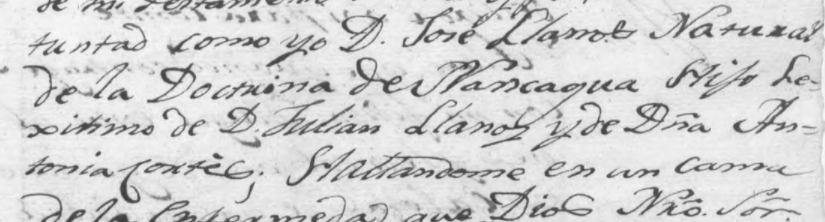 de mi Testamento
tuntad como yo D. José Llanos Natural
de la Doctrina de Nancagua Hijo Le-
xitimo de D. Julian Llanos y de Dña An-
tonia Cortés; Hallandome en un cama
de la Enfermedad que Dios Nro. Sor.